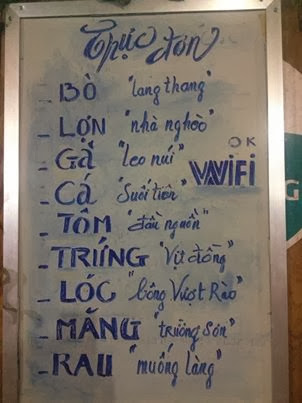 Thực đơn
- BÒ "lang thang"
- LỢN "nhà nghèo"
- GÀ "leo núi"
OK
WIFI
- CÁ "Suối tiên"
- TÔM "đầu nguồn"
- TRỨNG "Vịt đồng"
- LÓC "bông Vượt Rào"
- MĂNG "trường Sơn"
- RAU "muống làng"
G